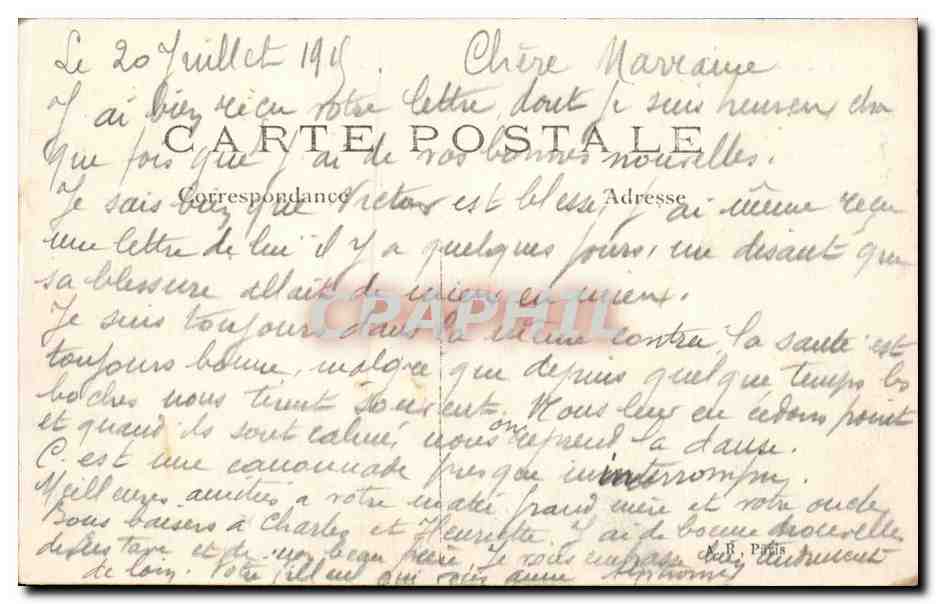 Le 20 Juillet 1915. Chère Marraine
J'ai bien reçu votre lettre dont je suis heureux cha
CARTE POSTALE
que fois que j'ai de vos bonnes nouvelles.
Correspondance Adresse
Je sais bien que Victor est blessé, j'ai même reçu
une lettre de lui il y a quelques jours, me disant que
sa blessure allait de mieux en mieux.
CPAPHIL
Je suis toujours dans la même contrée, la santé est
toujours bonne, malgré que depuis quelque temps les
boches nous tirent souvent. Nous leur en cédons point
et quand ils sont calmés nous on reprend la danse.
C'est une canonnade presque ininterrompu.
Meilleures amitiés a votre mari grand mère et votre oncle
Bons baisers à Charles et Henriette. J'ai de bonne nouvelles
de Gustave et de mon beau frère. Je vous embrasse bien tendrement
A. R. Paris
de loin. Votre filleul qui vous aime